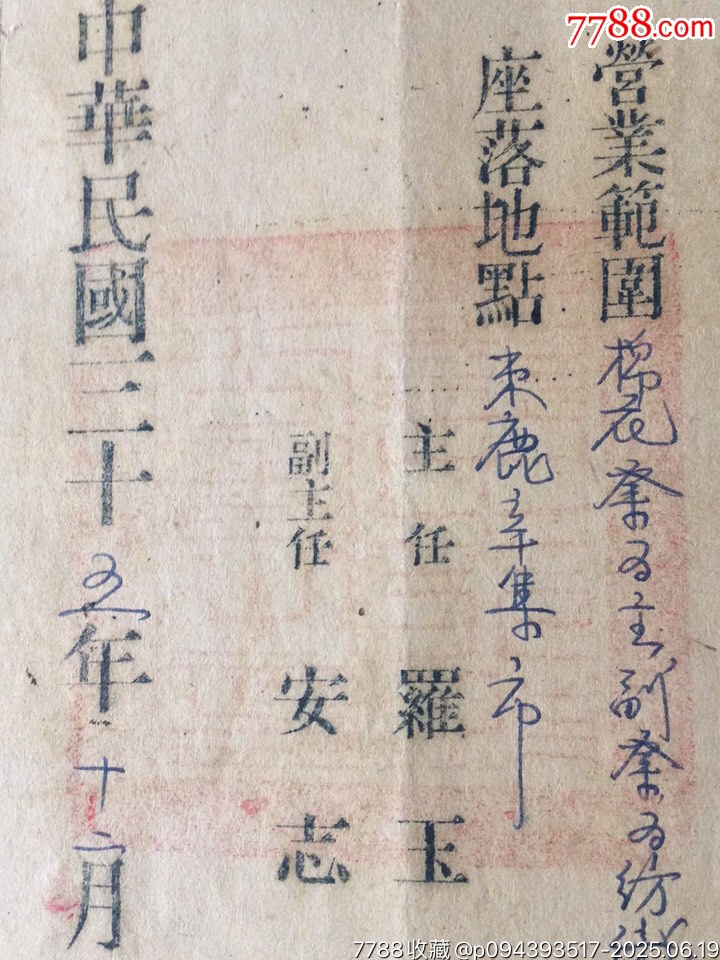 7788.com
營業範圍 棉花業为主副業为紡織
座落地點 束鹿辛集市
主任 羅玉
副主任 安志
中華民國三十五年十二月
7788收藏 @p094393517-2025.06.19